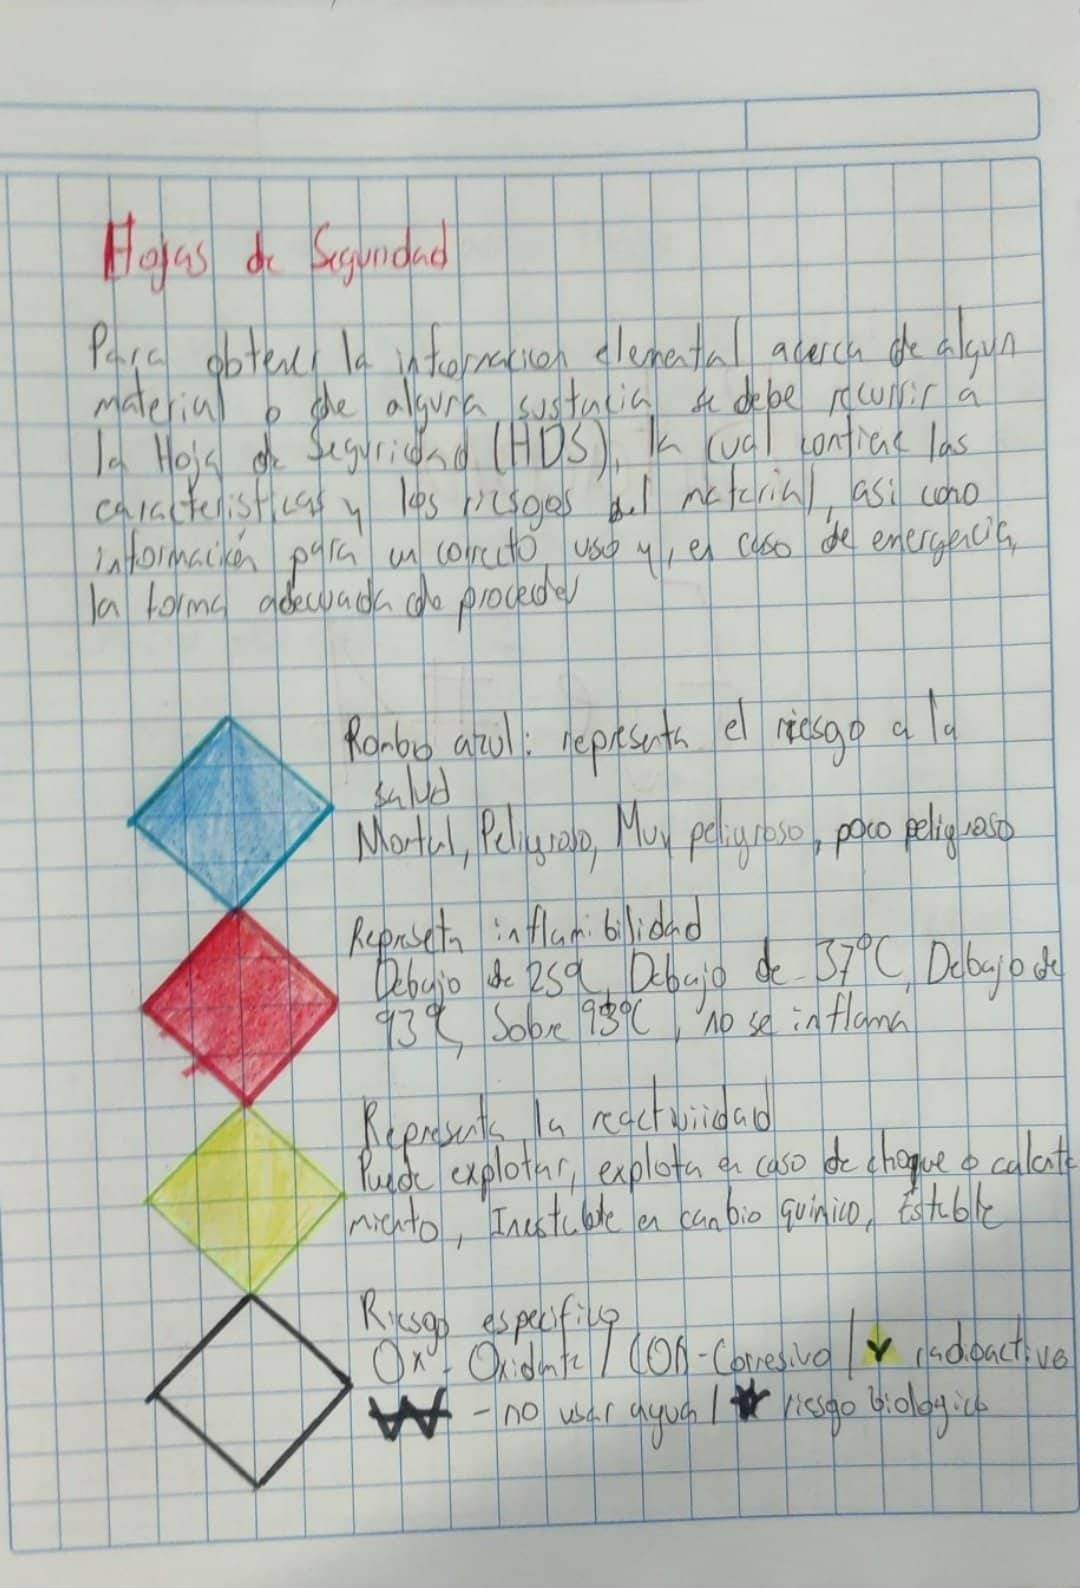 Hojas de Seguridad
Para obtener la informacion elemental acerca de algun
material o de alguna sustacia se debe recurrir a
la Hoja de Seguridad (HDS), la cual contiene las
caracteristicas y los riesgos del material, asi como
información para un correcto uso y, en caso de emergencia,
la forma adecuada de proceder
Rombo azul: representa el riesgo a la
salud
Mortal, Peligroso, Muy peligroso, poco peligroso
Represeta inflamibilidad
Debajo de 25°C, Debajo de 37°C, Debajo de
93°C, Sobre 93°C, no se inflama
Representa la reactiviidad
Puede explotar, explota en caso de choque o calenta
miento, Inestable en cambio quimico, Estable
Riesgo especifico
Ox - Oxidante / COR - Corresivo / radioactivo
W - no usar agua / riesgo biologico